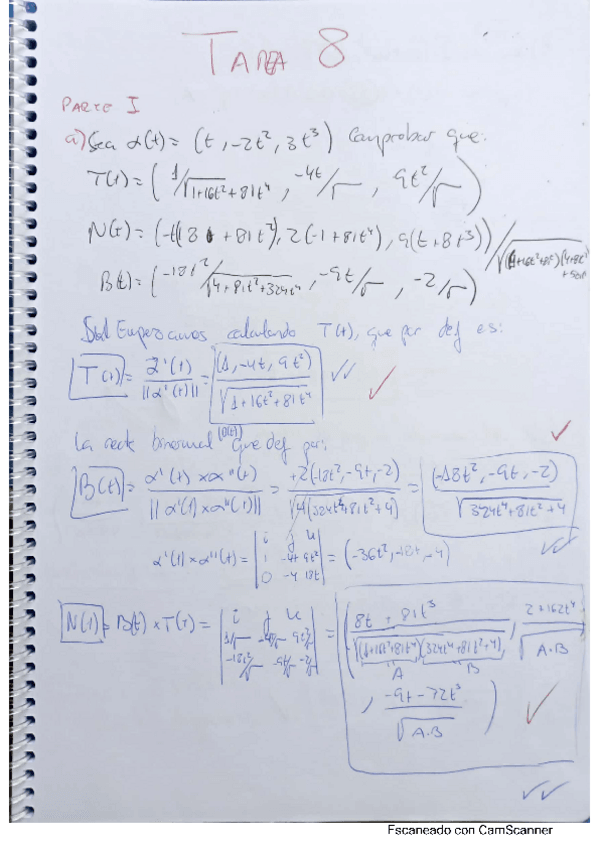 TAREA 8
PARTE I
a) Sea α(t) = (t, -2t², 3t³) comprobar que:
T(t) = (1/√1+16t²+81t⁴, -4t/√, 9t²/√)
N(t) = (-t(8 + 81t²), 2(-1+81t⁴), 9(t+8t³))/
B(t) = (-18t²/√4+81t²+324t⁴, -9t/√, -2/√)
Empezamos calculando T(t), que por def es:
T(t) = α'(t)/||α'(t)|| = (1, -4t, 9t²)/√1+16t²+81t⁴
La recta binormal (B(t)) que def por:
B(t) = α'(t) × α''(t)/||α'(t) × α''(t)|| = +2(-18t², -9t, -2)/√4(324t⁴+81t²+4) = (-18t², -9t, -2)/√324t⁴+81t²+4
α'(t) × α''(t) = |i j k; 1 -4t 9t²; 0 -4 18t| = (-36t², -18t, -4)
N(t) = B(t) × T(t) = |i j k; 1/√ -4t/√ 9t²/√; -18t²/√ -9t/√ -2/√| = (8t + 81t³/√(1+16t²+81t⁴)(324t⁴+81t²+4), 2+162t⁴/√A·B
A B
, -9t-72t³/√A·B)
Escaneado con CamScanner